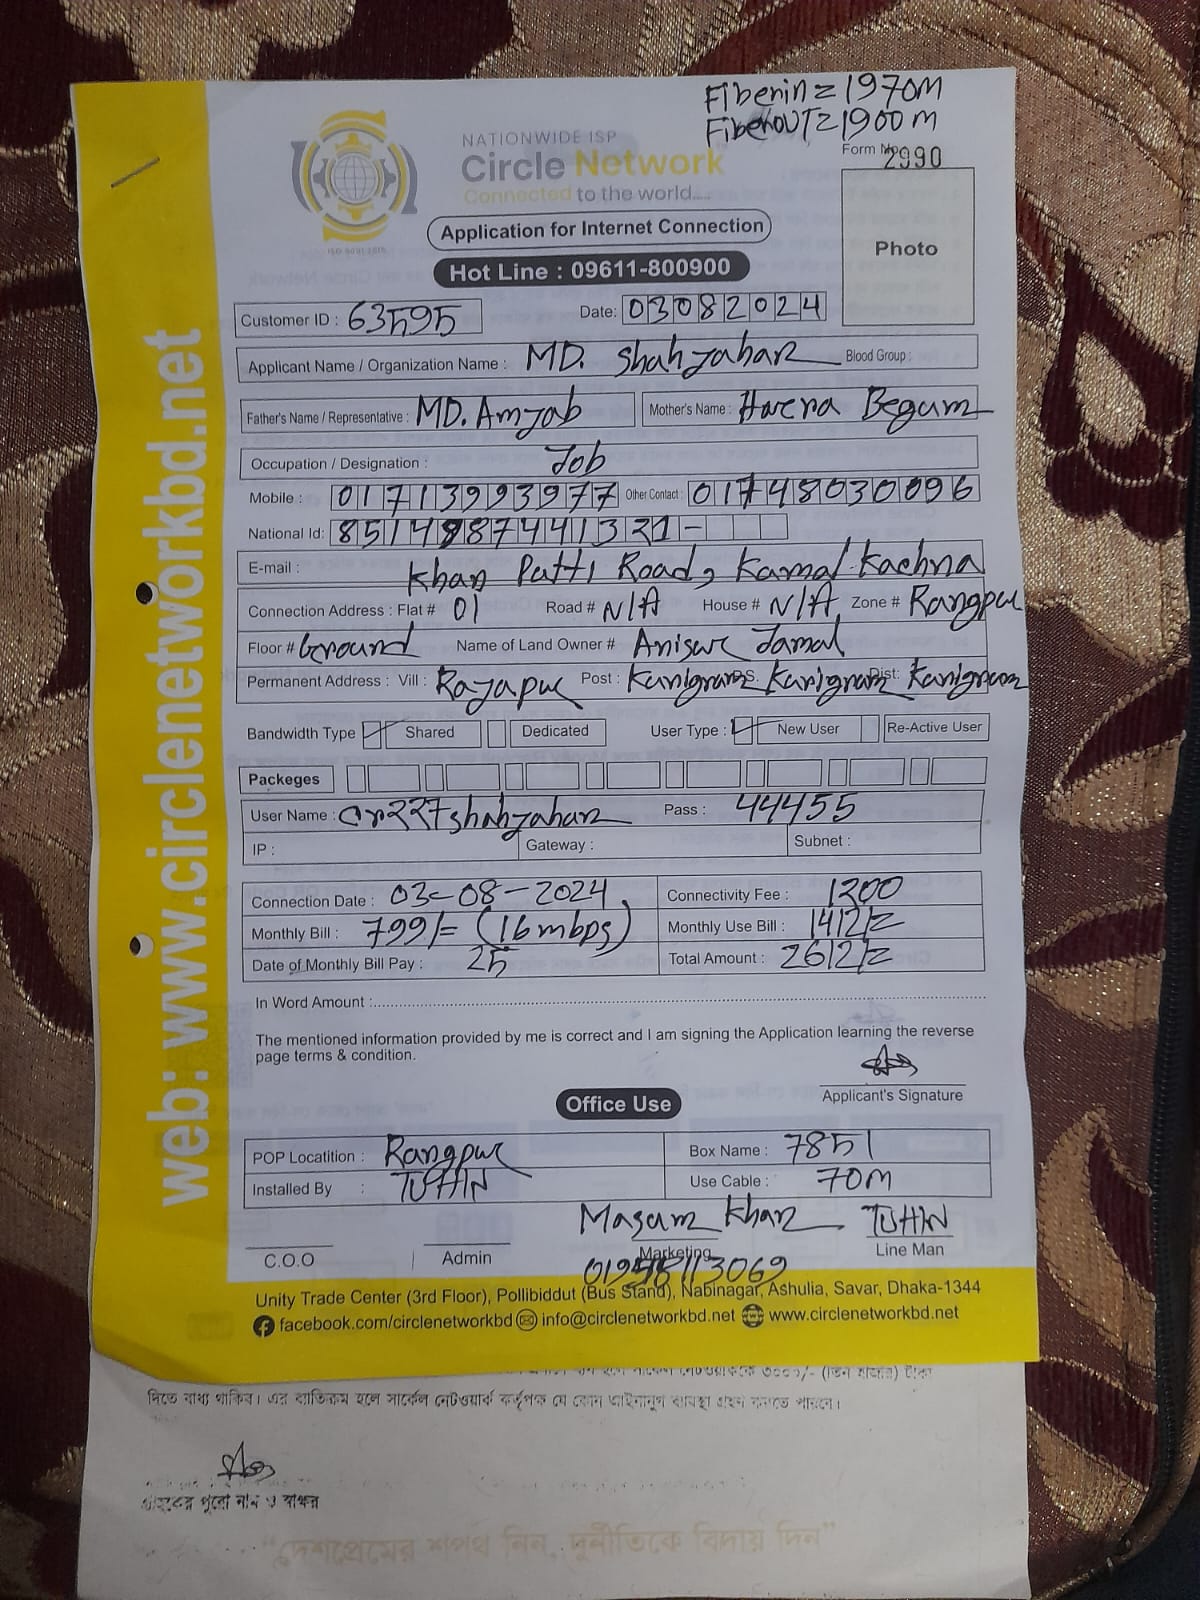 Fiberin = 1970m
FiberouT = 1900m
NATIONWIDE ISP
Circle Network
Connected to the world....
Form No. 2990
Application for Internet Connection
Photo
Hot Line : 09611-800900
Customer ID : 63595 Date: 03082024
Applicant Name / Organization Name : MD. Shahjahan Blood Group :
Father's Name / Representative : MD. Amjab Mother's Name : Begum
Occupation / Designation : Job
Mobile : 01713993977 Other Contact : 01748030096
National Id:
E-mail : Khan Patti Road, Kamal Kachna
Connection Address : Flat # 01 Road # N/A House # N/A Zone # Rangpur
Floor # Ground Name of Land Owner # Anisur Jamal
Permanent Address : Vill : Rajapur Post : Kurigram P.S. Kurigram Dist: Kurigram
Bandwidth Type Shared Dedicated User Type : New User Re-Active User
Packeges
User Name : cn227shahjahan Pass : 44455
IP : Gateway : Subnet :
Connection Date : 03-08-2024 Connectivity Fee : 1200
Monthly Bill : 799/= (16mbps) Monthly Use Bill : 1412/=
Date of Monthly Bill Pay : 25 Total Amount : 2612/=
In Word Amount :
The mentioned information provided by me is correct and I am signing the Application learning the reverse
page terms & condition.
Applicant's Signature
Office Use
POP Locatition : Rangpur Box Name : 7851
Installed By : TUHIN Use Cable : 70m
Masum Khan TUHIN
C.O.O Admin Marketing Line Man
Unity Trade Center (3rd Floor), Pollibiddut (Bus Stand), Nabinagar, Ashulia, Savar, Dhaka-1344
facebook.com/circlenetworkbd info@circlenetworkbd.net www.circlenetworkbd.net
web: www.circlenetworkbd.net
দিতে বাধ্য থাকিব। এর ব্যতিক্রম হলে সার্কেল নেটওয়ার্ক কর্তৃপক্ষ যে কোন আইনানুগ ব্যবস্থা গ্রহন করতে পারবে।
গ্রাহকের পুরো নাম ও স্বাক্ষর
“দেশপ্রেমের শপথ নিন, দুর্নীতিকে বিদায় দিন”